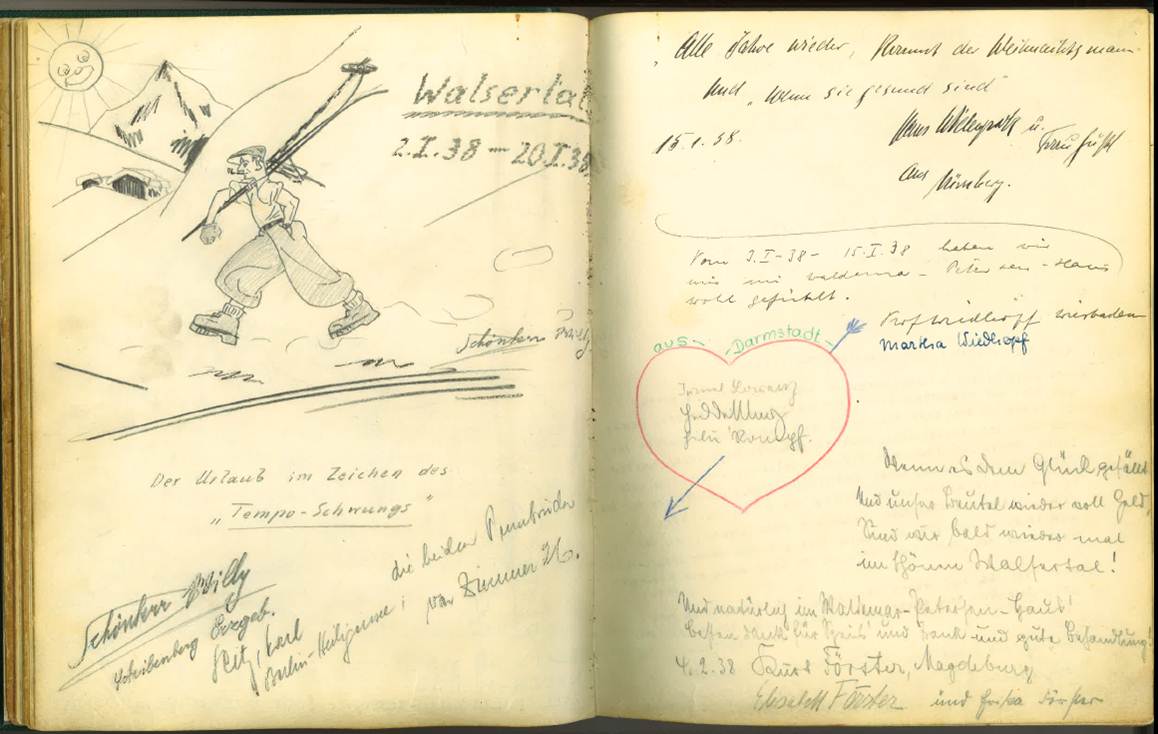 Walsertal
2.I.38 – 20.I.38
Schönherr Willy
Der Urlaub im Zeichen des
„Tempo-Schwungs“
Schönherr Willy
Scheibenberg Erzgeb.
Karl
Berlin-Heiligensee;
die beiden Pennbrüder
von Zimmer 26.
„Alle Jahre wieder, kommt der Weihnachtsmann
und „Wenn sie gesund sind“
15.1.38.
Hans u.
Frau
aus
Nürnberg.
Vom 3.I-38 – 15.I.38 haben wir
uns im Waldemar-Petersen-Haus
wohl gefühlt.
Wiedhopf Wiesbaden
Martha Wiedhopf
aus – Darmstadt –
Wenn es dem Glück gefällt
Und unser Beutel wieder voll Geld,
Sind wir bald wieder mal
im schönen Walsertal!
Und natürlich im Waldemar-Petersen-Haus!
Besten Dank für Speis' und Trank und gute Behandlung!
4.2.38 Kurt Förster, Magdeburg
Elisabeth Förster und Förster